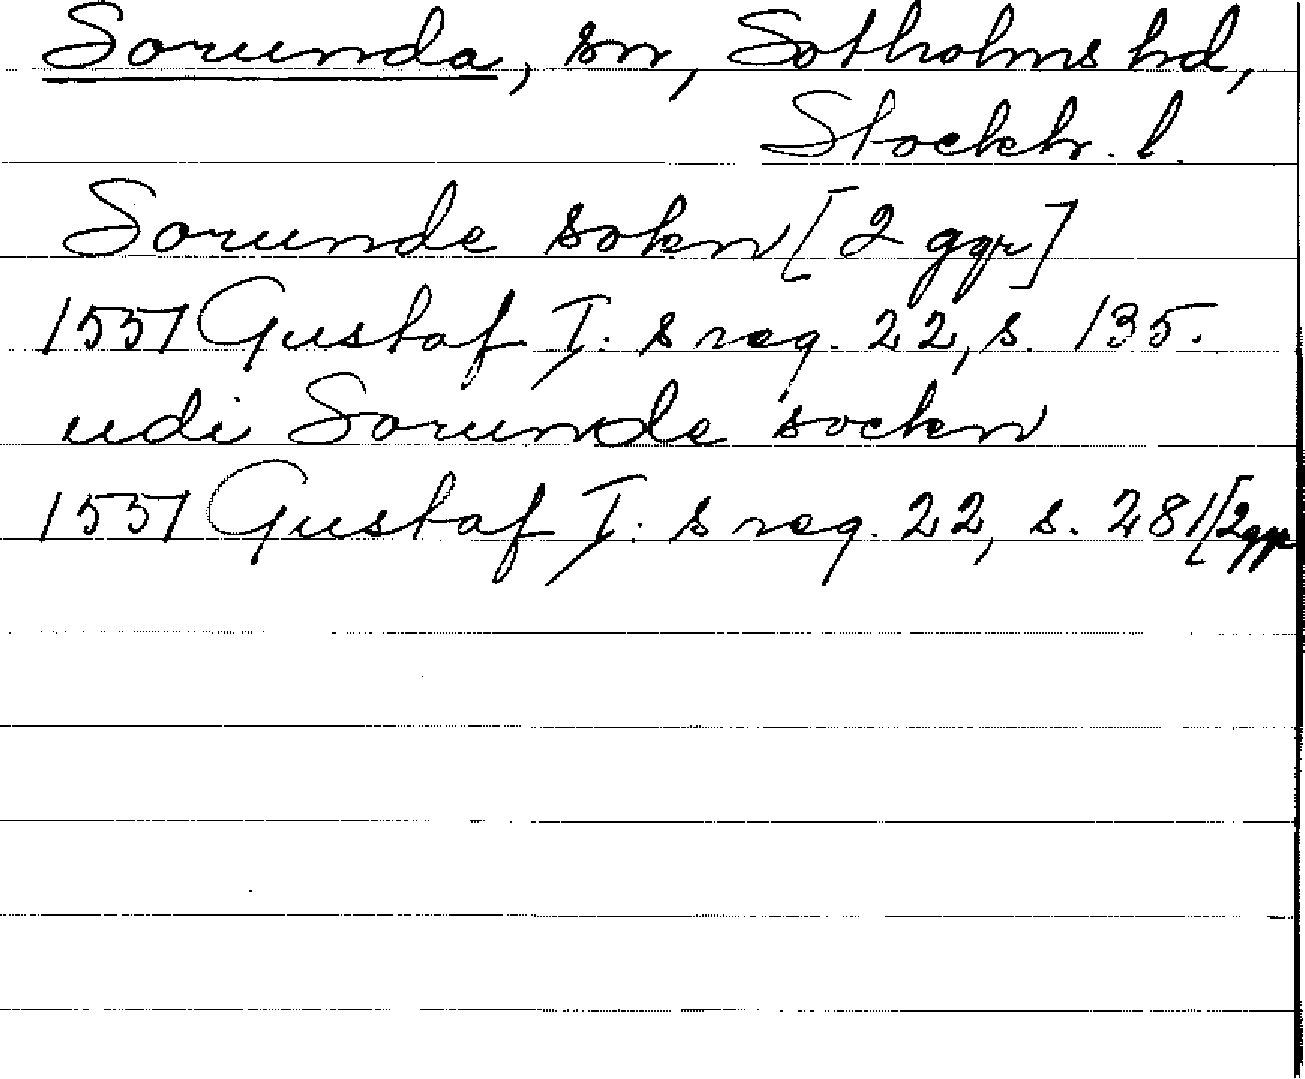 Sorunda, sn, Sotholms hd,
Stockh. l.
Sorunde sokn [2 ggr]
1551 Gustaf I:s reg. 22, s. 135.
udi Sorunde sockn
1551 Gustaf I:s reg. 22, s. 281 [2 ggr